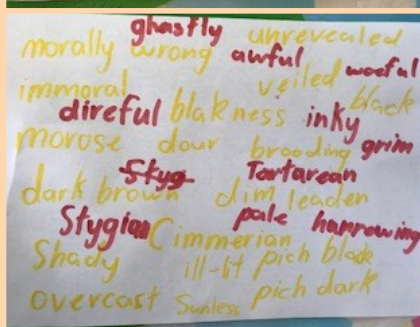 ghastly unrevealed
morally wrong awful
immoral veiled woeful
direful blakness inky black
morose dour brooding grim
Styg Tartarean
dark brown dim leaden
Stygian Cimmerian pale harrowing
Shady ill-lit pich black
overcast Sunless pich dark